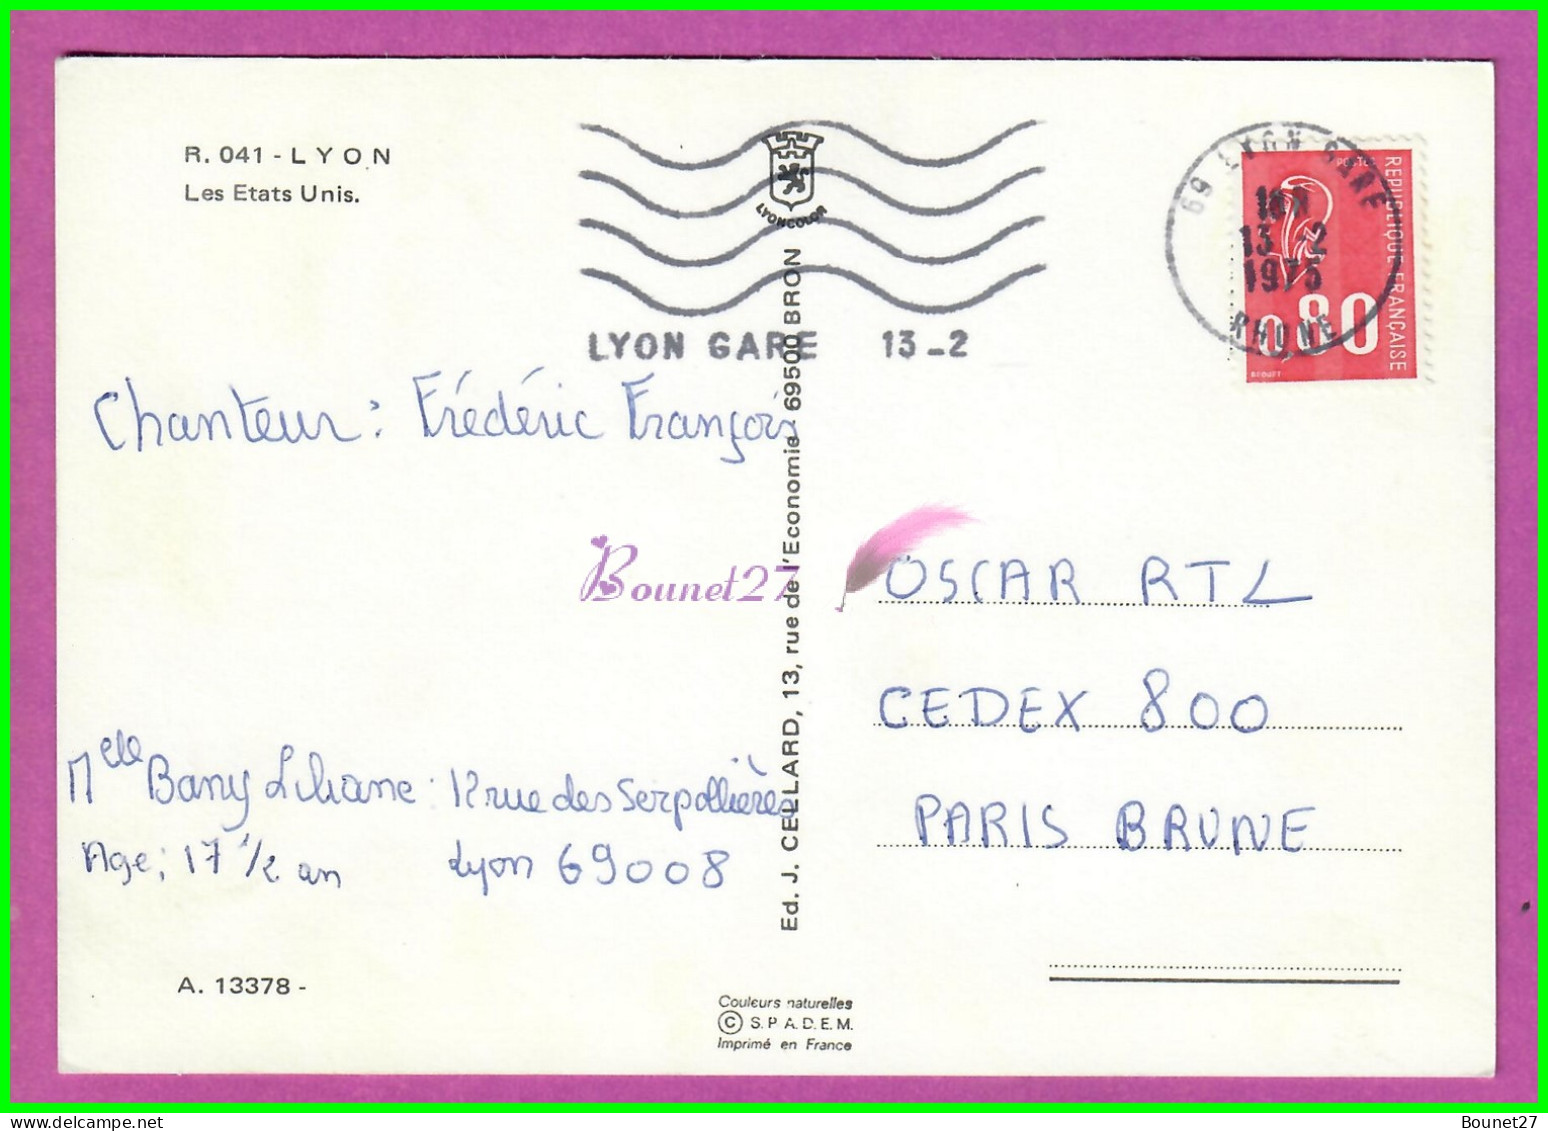 R. 041 - LYON
Les Etats Unis.
LYONCOLOR
LYON GARE 13-2
69 LYON GARE
13-2
1975
RHONE
POSTES
REPUBLIQUE FRANÇAISE
0,80
BEQUET
Chanteur : Frédéric François
Bounet27
Ed. J. CELLARD, 13, rue de l'Economie 69500 BRON
OSCAR RTL
CEDEX 800
PARIS BRUNE
Melle Bany Liliane : 12 rue des Serpollières
Age : 17 1/2 an Lyon 69008
A. 13378 -
Couleurs naturelles
© S.P.A.D.E.M.
Imprimé en France
Bounet27